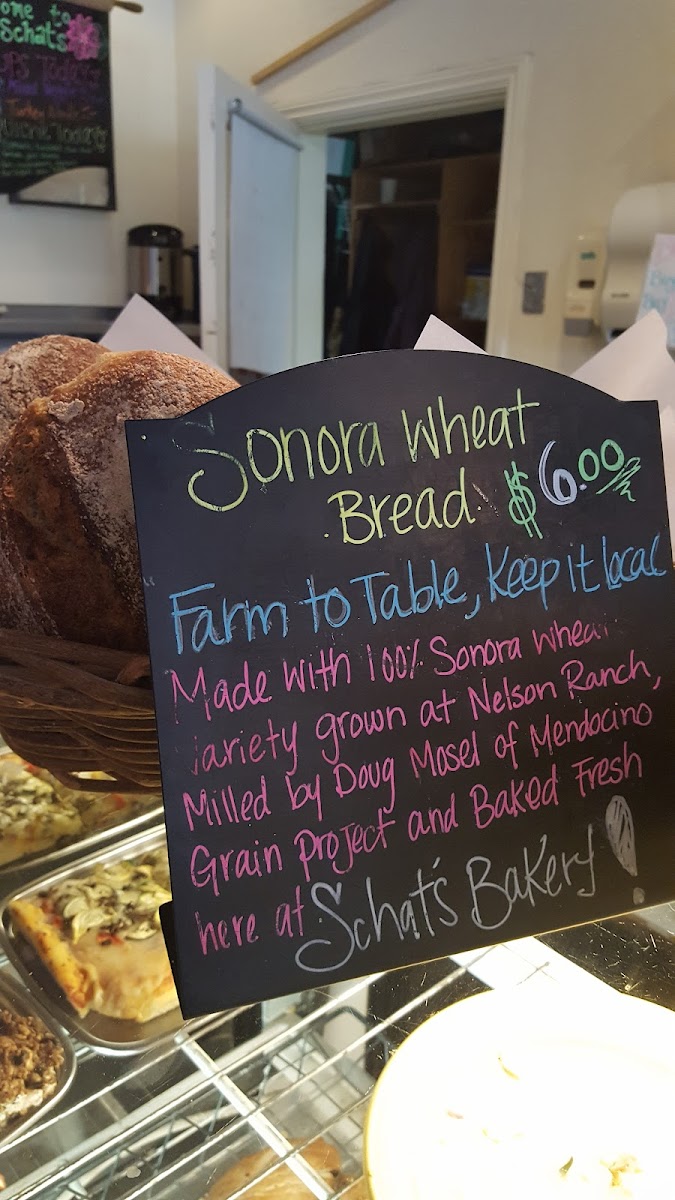 ome to
Schats
Today
Sonora Wheat
Bread $6.00
Farm to Table, Keep it Local
Made with 100% Sonora Whea
variety grown at Nelson Ranch,
Milled by Doug Mosel of Mendocino
Grain Project and Baked Fresh
here at Schat's Bakery!